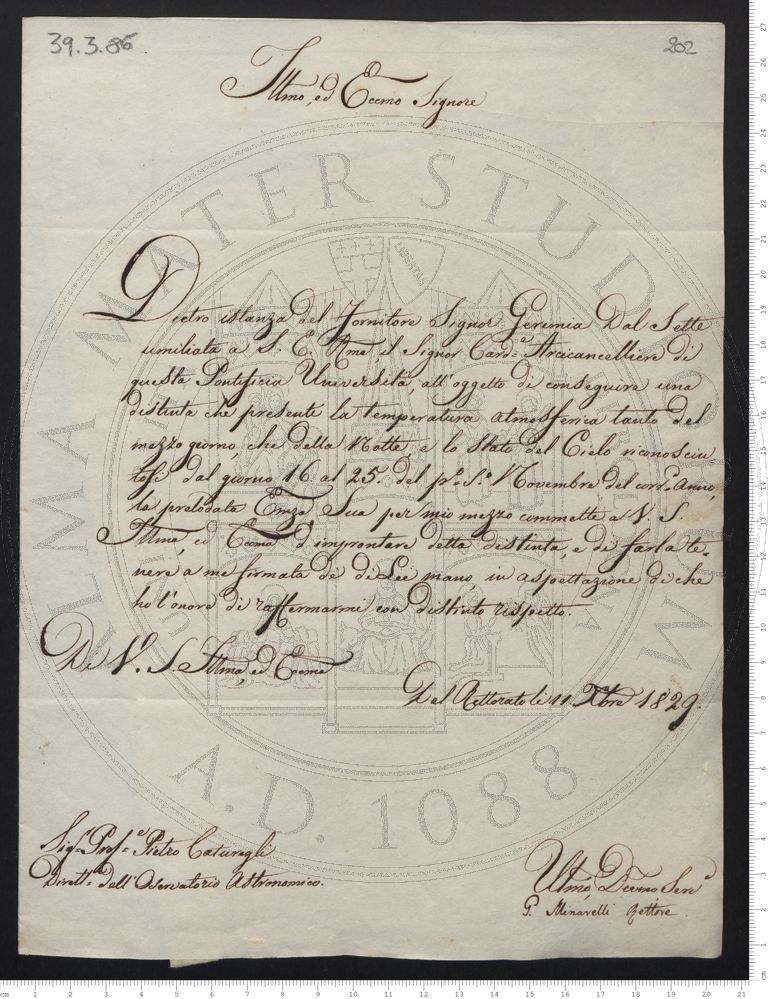 39.3.86
202
Illmo, ed Eccmo Signore
Dietro istanza del Fornitore Signor Geremia Dal Sette
umiliata a S. E. Rma il Signor Card.e Arcicancelliere di
questa Pontificia Università, all'oggetto di conseguire una
distinta che presenti la temperatura atmosferica tanto del
mezzo giorno, che della Notte, e lo stato del Cielo riconosciu-
tosi dal giorno 16. al 25. del p.o S.o Novembre del corr.e anno,
la prelodata Emza Sua per mio mezzo commette a V. S.
Illma, ed Eccma d'improntare detta distinta, e di farla te-
nere a me firmata di di Lei mano, in aspettazione di che
ho l'onore di raffermarmi con distinto rispetto.
Di V. S. Illma, ed Eccma
Dal Rettorato li 11. Xbre 1829.
Sig.r Prof.e Pietro Caturegli
Dirett.e dell'Osservatorio Astronomico.
Umo, Devmo Serv.e
G. Minarelli Rettore.
ALMA MATER STUDIORUM
A.D. 1088
LIBERTAS